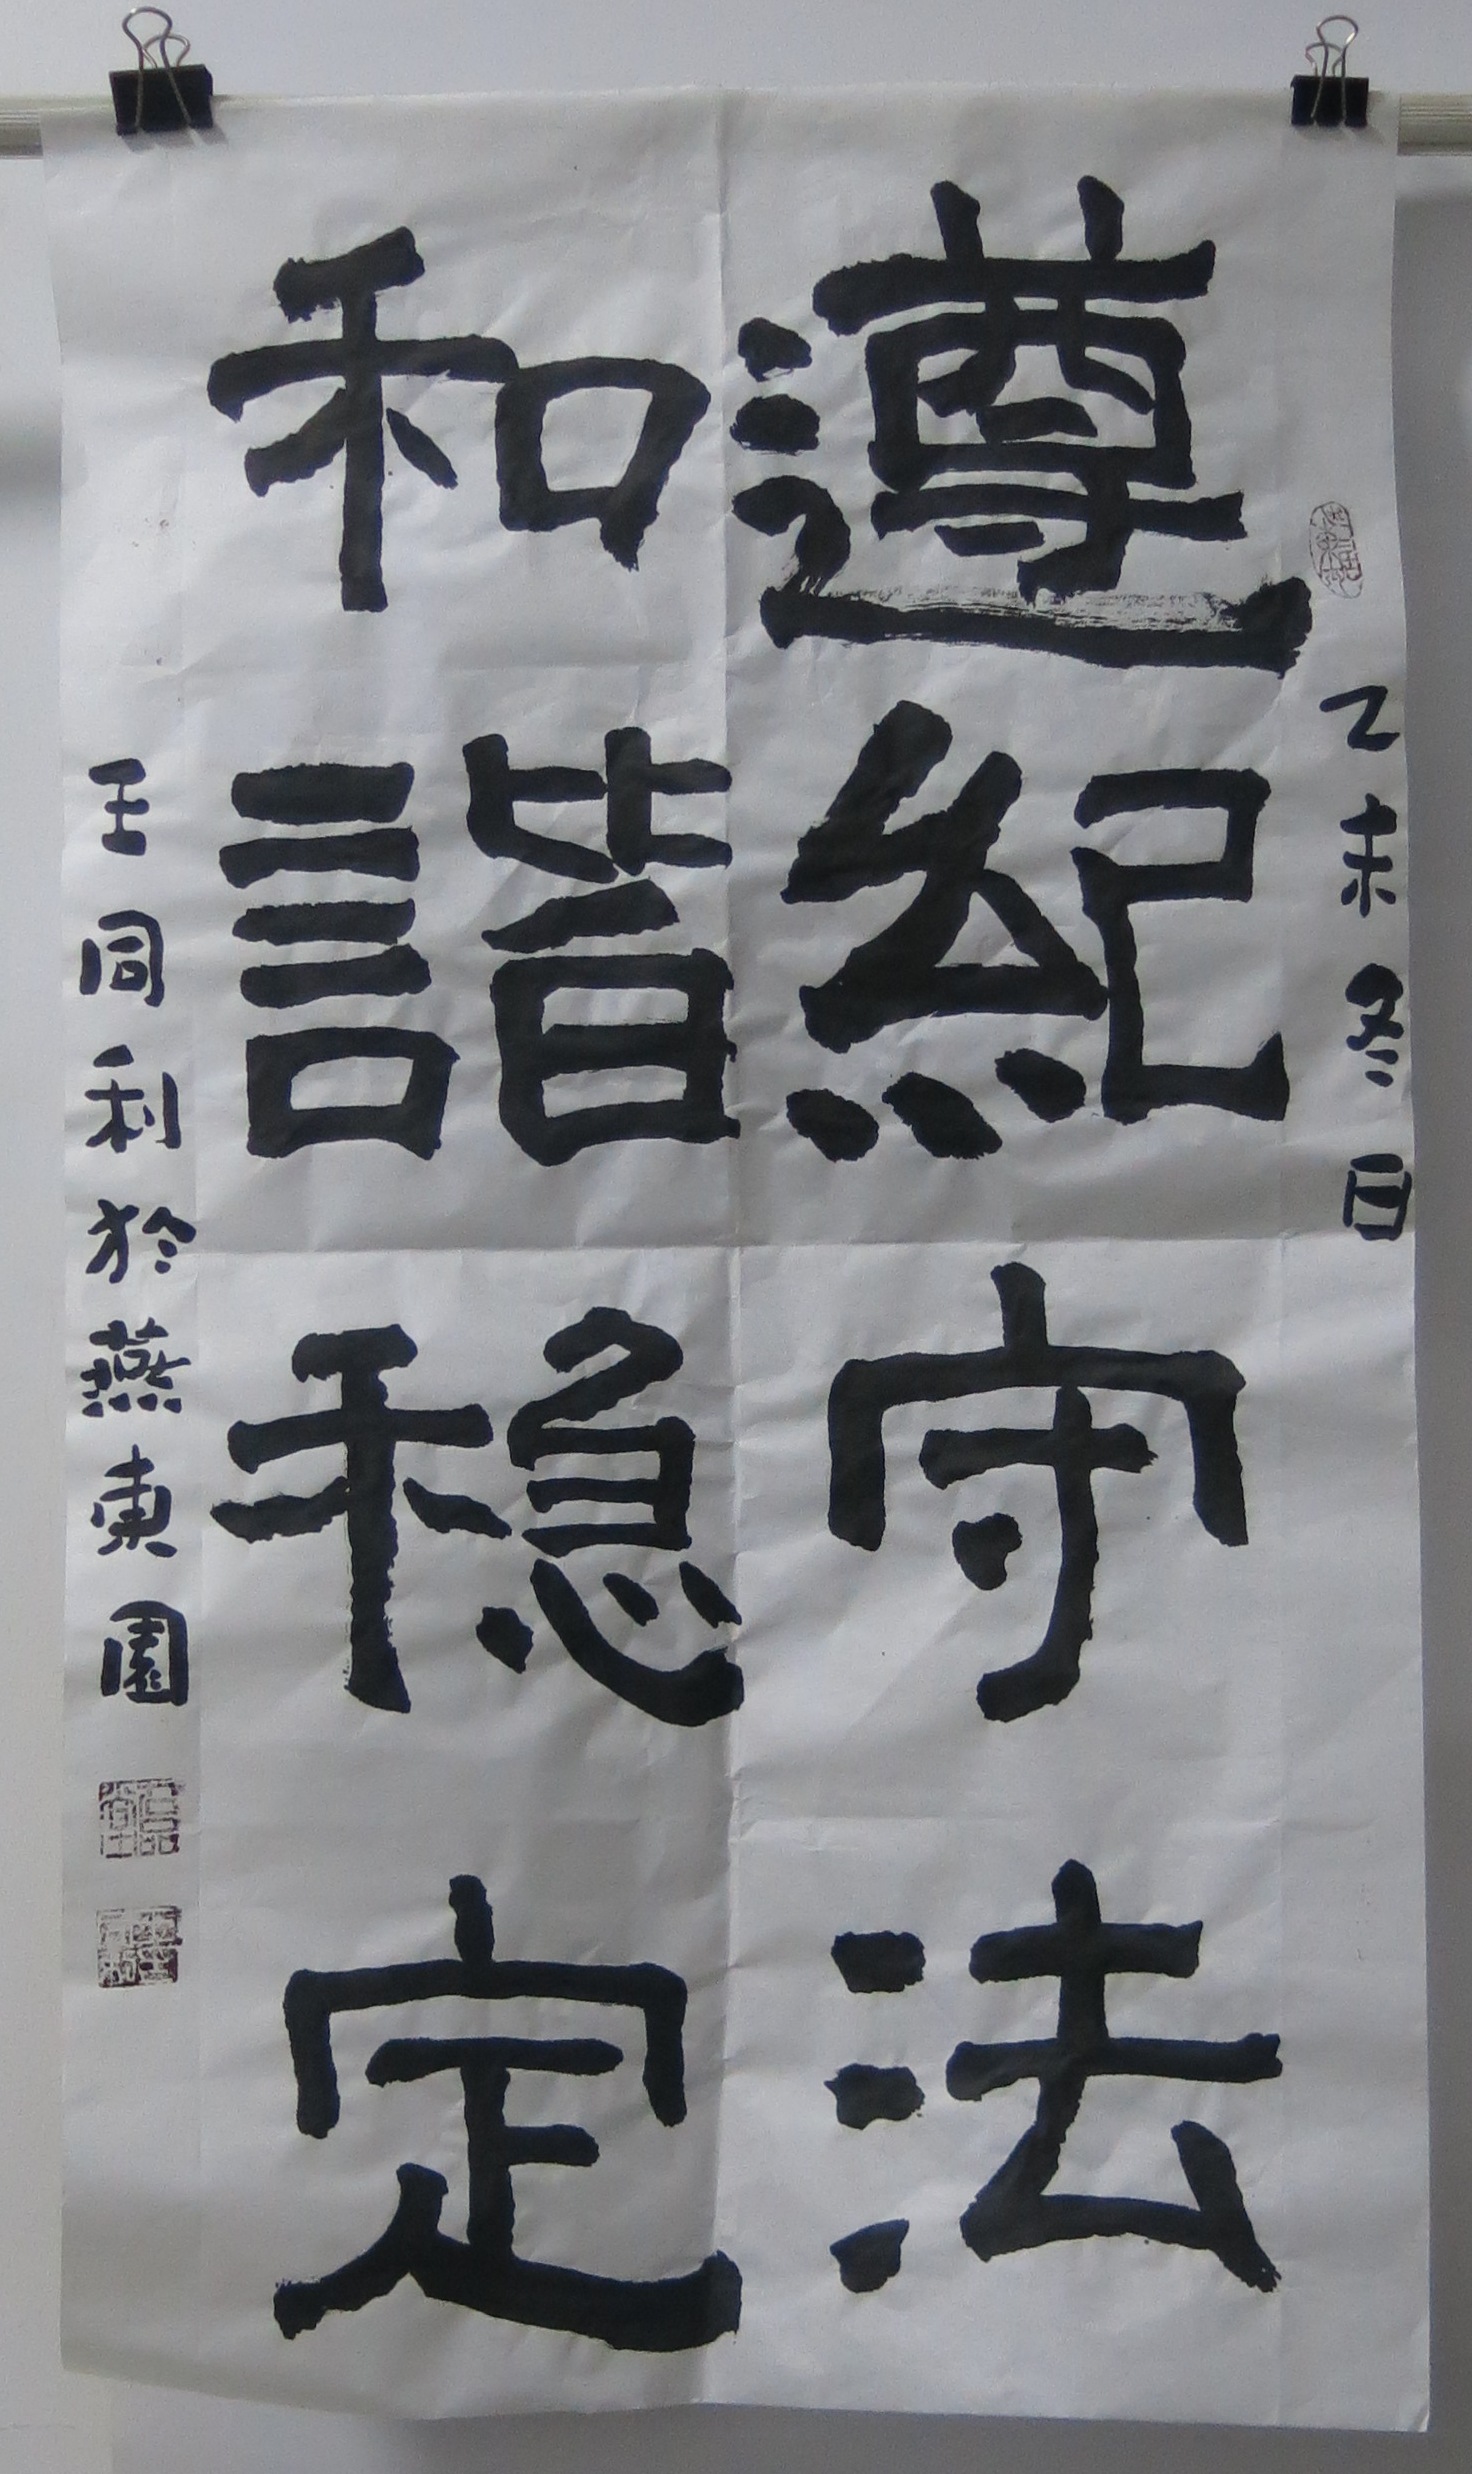 乙未冬日
遵紀守法
和諧稳定
王同利於燕東園